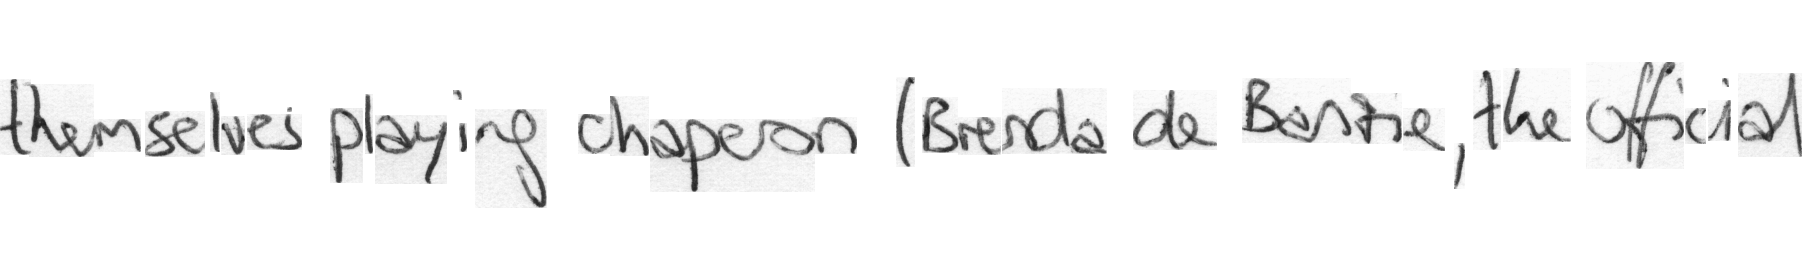 themselves playing chaperon (Brenda de Banzie, the official